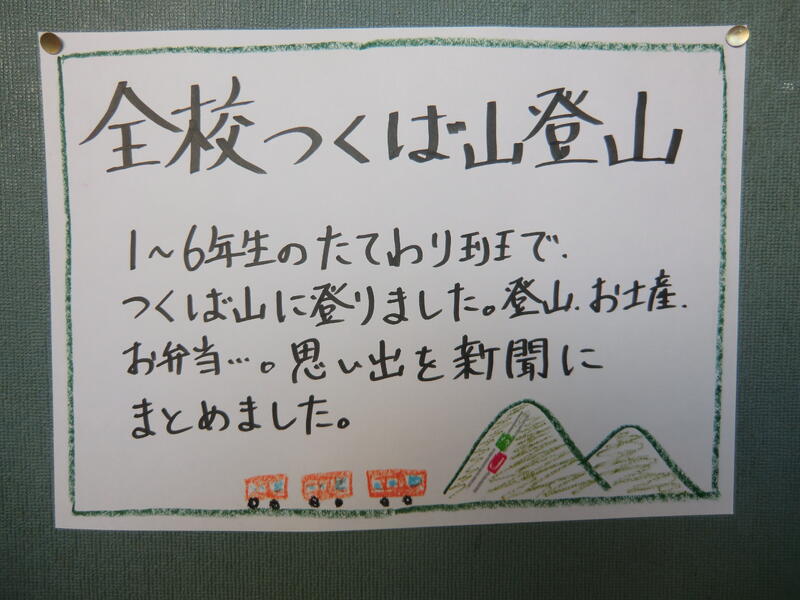 全校つくば山登山
1～6年生のたてわり班で、
つくば山に登りました。登山、お土産、
お弁当…。思い出を新聞に
まとめました。